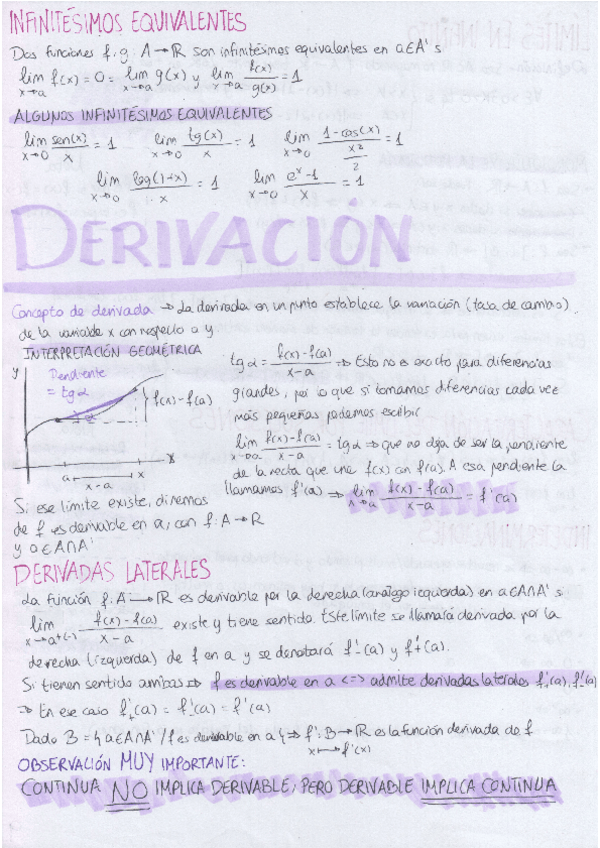 INFINITÉSIMOS EQUIVALENTES
Dos funciones f, g: A → ℝ son infinitésimos equivalentes en a∈A' si
lim_{x→a} f(x) = 0 = lim_{x→a} g(x) y lim_{x→a} f(x)/g(x) = 1
ALGUNOS INFINITÉSIMOS EQUIVALENTES
lim_{x→0} sen(x)/x = 1 lim_{x→0} tg(x)/x = 1 lim_{x→0} (1-cos(x))/(x²/2) = 1
lim_{x→0} log(1+x)/x = 1 lim_{x→0} (e^x-1)/x = 1
DERIVACIÓN
Concepto de derivada → La derivada en un punto establece la variación (tasa de cambio)
de la variable x con respecto a y.
INTERPRETACIÓN GEOMÉTRICA
y
Pendiente
= tg α
f(x)-f(a)
α
a x x
x-a
tg α = (f(x)-f(a))/(x-a) → Esto no es exacto para diferencias
grandes, por lo que si tomamos diferencias cada vez
más pequeñas podemos escribir
lim_{x→a} (f(x)-f(a))/(x-a) = tg α ⇒ que no deja de ser la pendiente
de la recta que une f(x) con f(a). A esa pendiente la
llamamos f'(a) ⇒ lim_{x→a} (f(x)-f(a))/(x-a) = f'(a)
Si ese límite existe, diremos
que f es derivable en a, con f: A → ℝ
y a∈A∩A'
DERIVADAS LATERALES
La función f: A → ℝ es derivable por la derecha (análogo izquierda) en a∈A∩A' si
lim_{x→a+(-)} (f(x)-f(a))/(x-a) existe y tiene sentido. Este límite se llamará derivada por la
derecha (izquierda) de f en a y se denotará f'₋(a) y f'₊(a).
Si tienen sentido ambas ⇒ f es derivable en a <=> admite derivadas laterales f'₊(a), f'₋(a)
⇒ En ese caso f'₊(a) = f'₋(a) = f'(a)
Dado B = {a∈A∩A' / f es derivable en a} ⇒ f': B → ℝ es la función derivada de f
x ↦ f'(x)
OBSERVACIÓN MUY IMPORTANTE:
CONTINUA NO IMPLICA DERIVABLE, PERO DERIVABLE IMPLICA CONTINUA